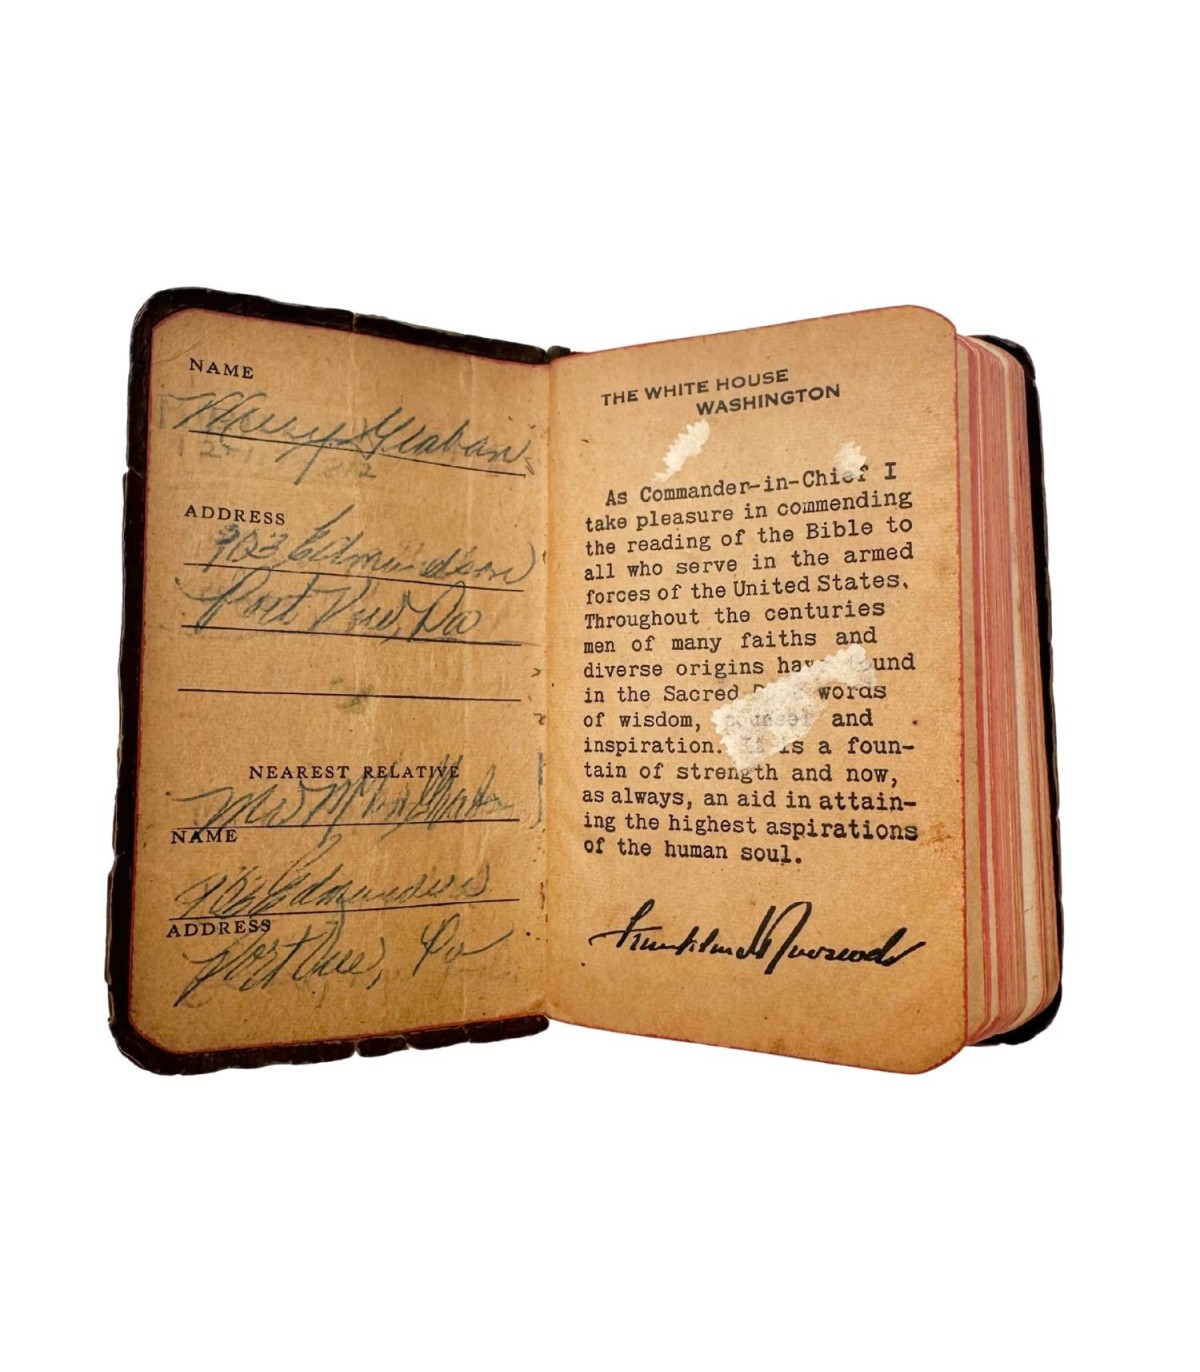 NAME
Mary Graban
ADDRESS
903 Edmundson
Port Vue, Pa
NEAREST RELATIVE
NAME
Edmundson
ADDRESS
Port Vue, Pa
THE WHITE HOUSE
WASHINGTON
As Commander-in-Chief I
take pleasure in commending
the reading of the Bible to
all who serve in the armed
forces of the United States.
Throughout the centuries
men of many faiths and
diverse origins have found
in the Sacred words
of wisdom, counsel and
inspiration. It is a foun-
tain of strength and now,
as always, an aid in attain-
ing the highest aspirations
of the human soul.
Franklin D Roosevelt